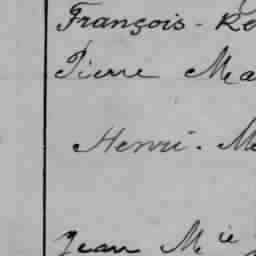 François - Re
Pierre Ma
Henri - Me
Jean Mie